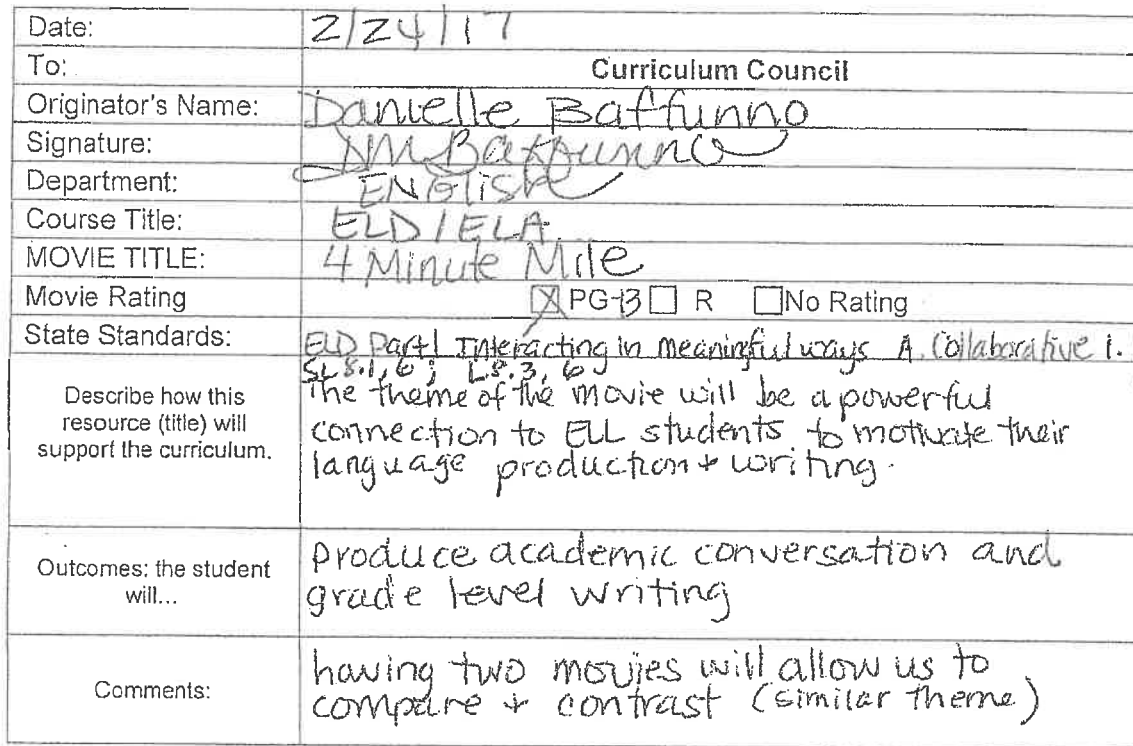 Date: 2/24/17
To: Curriculum Council
Originator's Name: Danielle Baffunno
Signature: DM Baffunno
Department: ENGlish
Course Title: ELD / ELA
MOVIE TITLE: 4 Minute Mile
Movie Rating ☒ PG-13 ☐ R ☐ No Rating
State Standards: ELD Part I Interacting in meaningful ways A. Collaborative 1.
SL 8.1, 6; L 8.3, 6
Describe how this
resource (title) will
support the curriculum.
The theme of the movie will be a powerful
connection to ELL students to motivate their
language production + writing.
Outcomes: the student
will...
produce academic conversation and
grade level writing
Comments:
having two movies will allow us to
compare + contrast (similar theme)